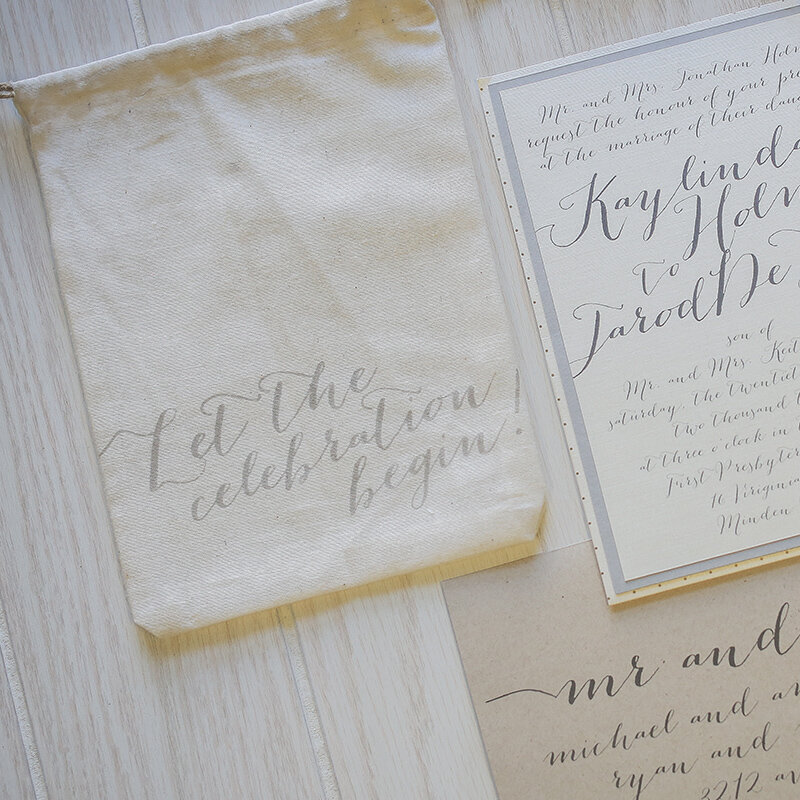 Let the
celebration
begin!
Mr. and Mrs. Jonathan
request the honour of your
at the marriage of their
Kaylinda
to
Jarod De
son of
Mr. and Mrs.
saturday, the
two thousand
at three o'clock in
First
16
Minden
mr. and
michael and
ryan and
3212